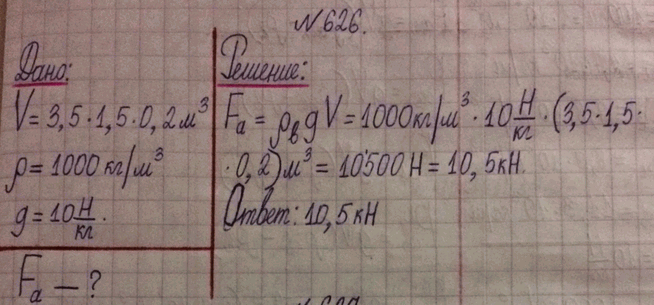 №626.
Дано:
V = 3,5·1,5·0,2м³
ρ = 1000 кг/м³
g = 10 Н/кг.
Fₐ — ?
Решение:
Fₐ = ρ_в g V = 1000кг/м³ · 10 Н/кг · (3,5·1,5·
·0,2)м³ = 10500 Н = 10,5кН.
Ответ: 10,5кН